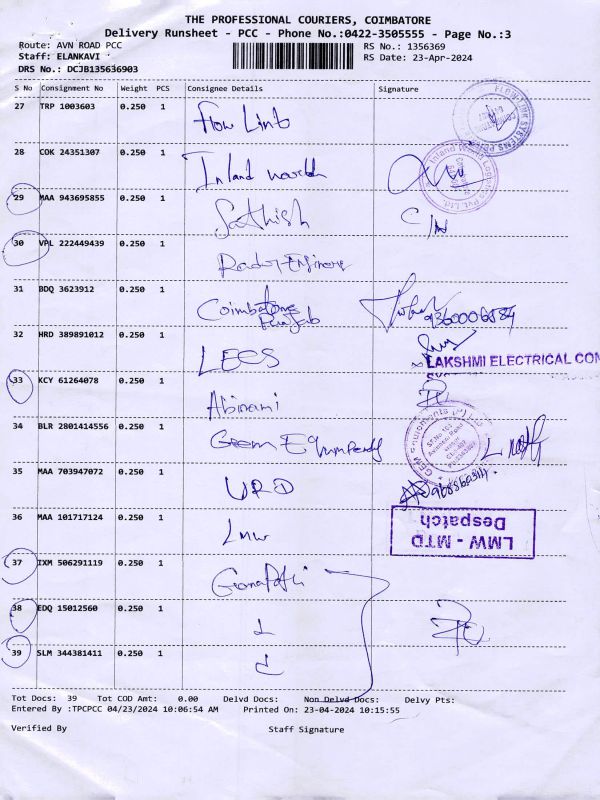 THE PROFESSIONAL COURIERS, COIMBATORE
Delivery Runsheet - PCC - Phone No.:0422-3505555 - Page No.:3
Route: AVN ROAD PCC RS No.: 1356369
Staff: ELANKAVI RS Date: 23-Apr-2024
DRS No.: DCJB135636903
S No Consignment No Weight PCS Consignee Details Signature
27 TRP 1003603 0.250 1 Flow Link
28 COK 24351307 0.250 1 Inland world
29 MAA 943695855 0.250 1 Sathish
30 VPL 222449439 0.250 1
31 BDQ 3623912 0.250 1 Coimbatore
Punjab 9360006584
32 HRD 389891012 0.250 1 LECS
LAKSHMI ELECTRICAL CON
33 KCY 61264078 0.250 1 Abirami
34 BLR 2801414556 0.250 1 Geem
35 MAA 703947072 0.250 1 URO
36 MAA 101717124 0.250 1 LMW
LMW - MTD
Despatch
37 IXM 506291119 0.250 1 Ganapathi
38 EDQ 15012560 0.250 1
39 SLM 344381411 0.250 1
Tot Docs: 39 Tot COD Amt: 0.00 Delvd Docs: Non Delvd Docs: Delvy Pts:
Entered By :TPCPCC 04/23/2024 10:06:54 AM Printed On: 23-04-2024 10:15:55
Verified By Staff Signature